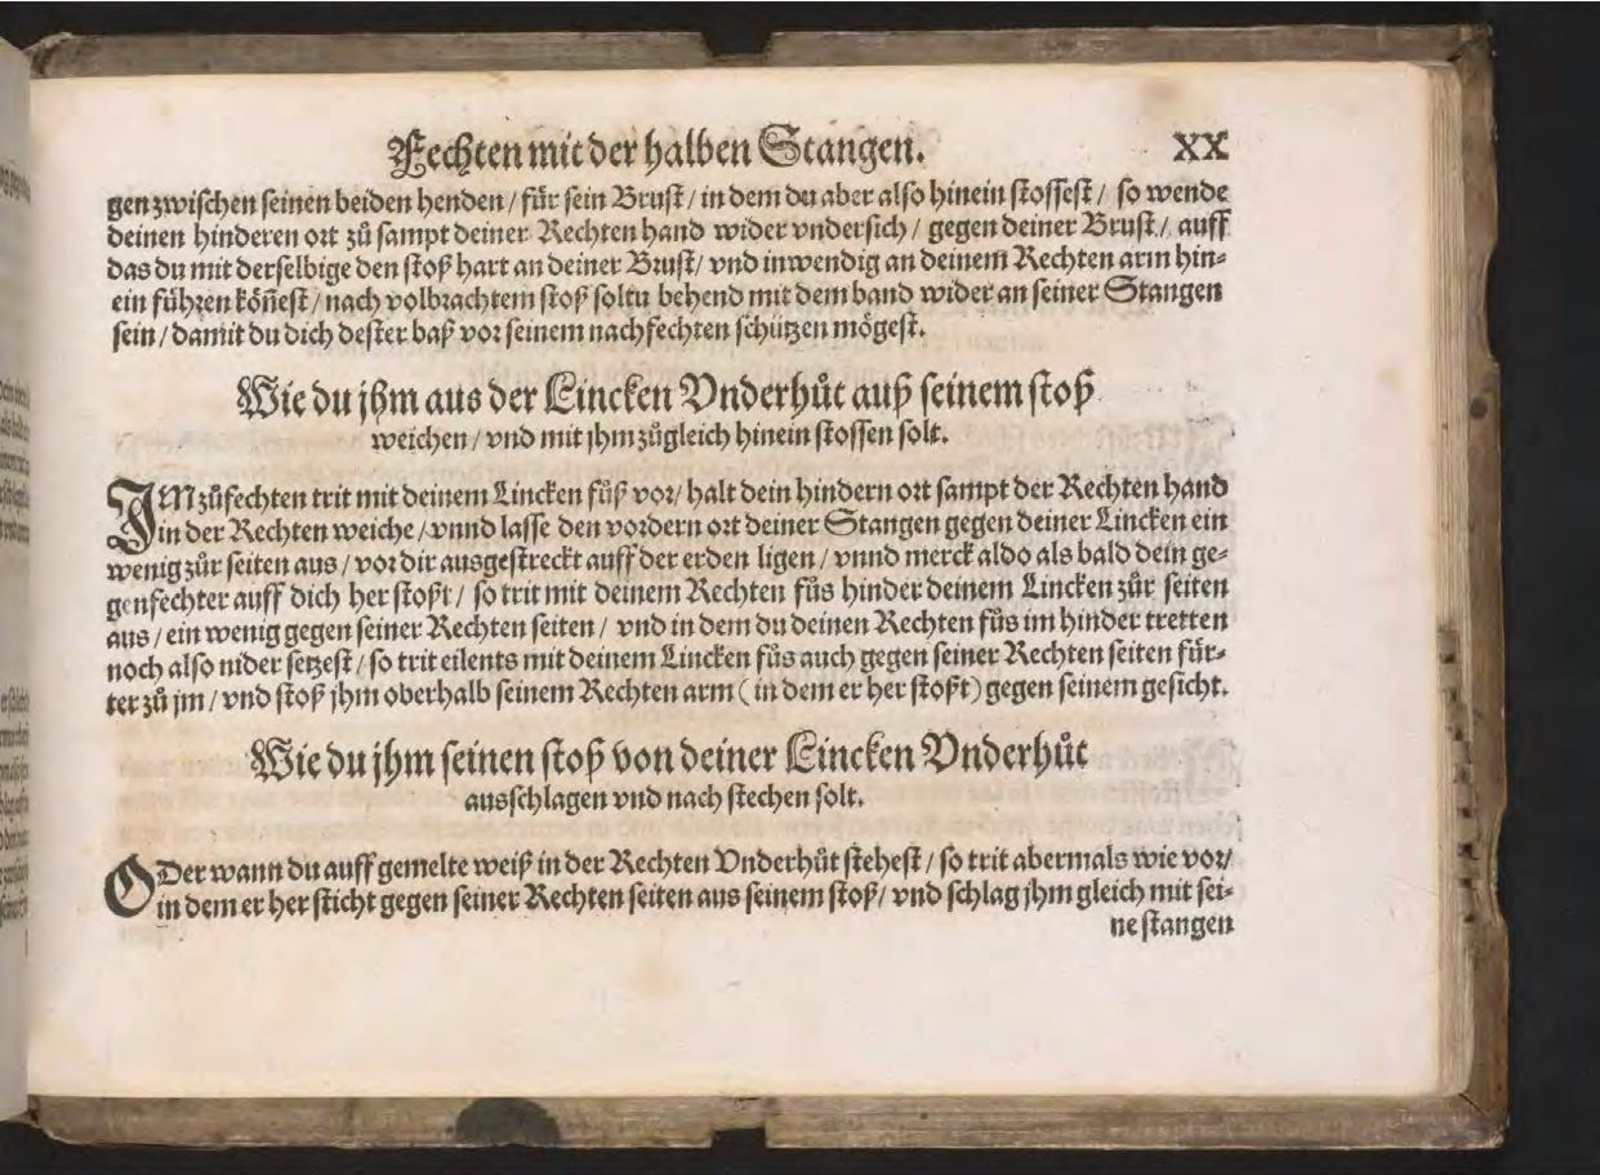 Fechten mit der halben Stangen. XX
gen zwischen seinen beiden henden / für sein Brust / in dem du aber also hinein stossest / so wende
deinen hinderen ort zů sampt deiner Rechten hand wider vndersich / gegen deiner Brust / auff
das du mit derselbige den stoß hart an deiner Brust / vnd inwendig an deinem Rechten arm hin-
ein führen köñest / nach volbrachtem stoß soltu behend mit dem band wider an seiner Stangen
sein / damit du dich dester baß vor seinem nachfechten schützen mögest.
Wie du jhm aus der Lincken Vnderhůt auß seinem stoß
weichen / vnd mit jhm zůgleich hinein stossen solt.
IM zůfechten trit mit deinem Lincken fůß vor / halt dein hindern ort sampt der Rechten hand
in der Rechten weiche / vnnd lasse den vordern ort deiner Stangen gegen deiner Lincken ein
wenig zůr seiten aus / vor dir ausgestreckt auff der erden ligen / vnnd merck aldo als bald dein ge-
genfechter auff dich her stoßt / so trit mit deinem Rechten fůs hinder deinem Lincken zůr seiten
aus / ein wenig gegen seiner Rechten seiten / vnd in dem du deinen Rechten fůs im hinder tretten
noch also nider setzest / so trit eilents mit deinem Lincken fůs auch gegen seiner Rechten seiten für-
ter zů jm / vnd stoß jhm oberhalb seinem Rechten arm ( in dem er her stoßt ) gegen seinem gesicht.
Wie du jhm seinen stoß von deiner Lincken Vnderhůt
ausschlagen vnd nach stechen solt.
ODer wann du auff gemelte weiß in der Rechten Vnderhůt stehest / so trit abermals wie vor /
in dem er her sticht gegen seiner Rechten seiten aus seinem stoß / vnd schlag jhm gleich mit sei-
ne stangen